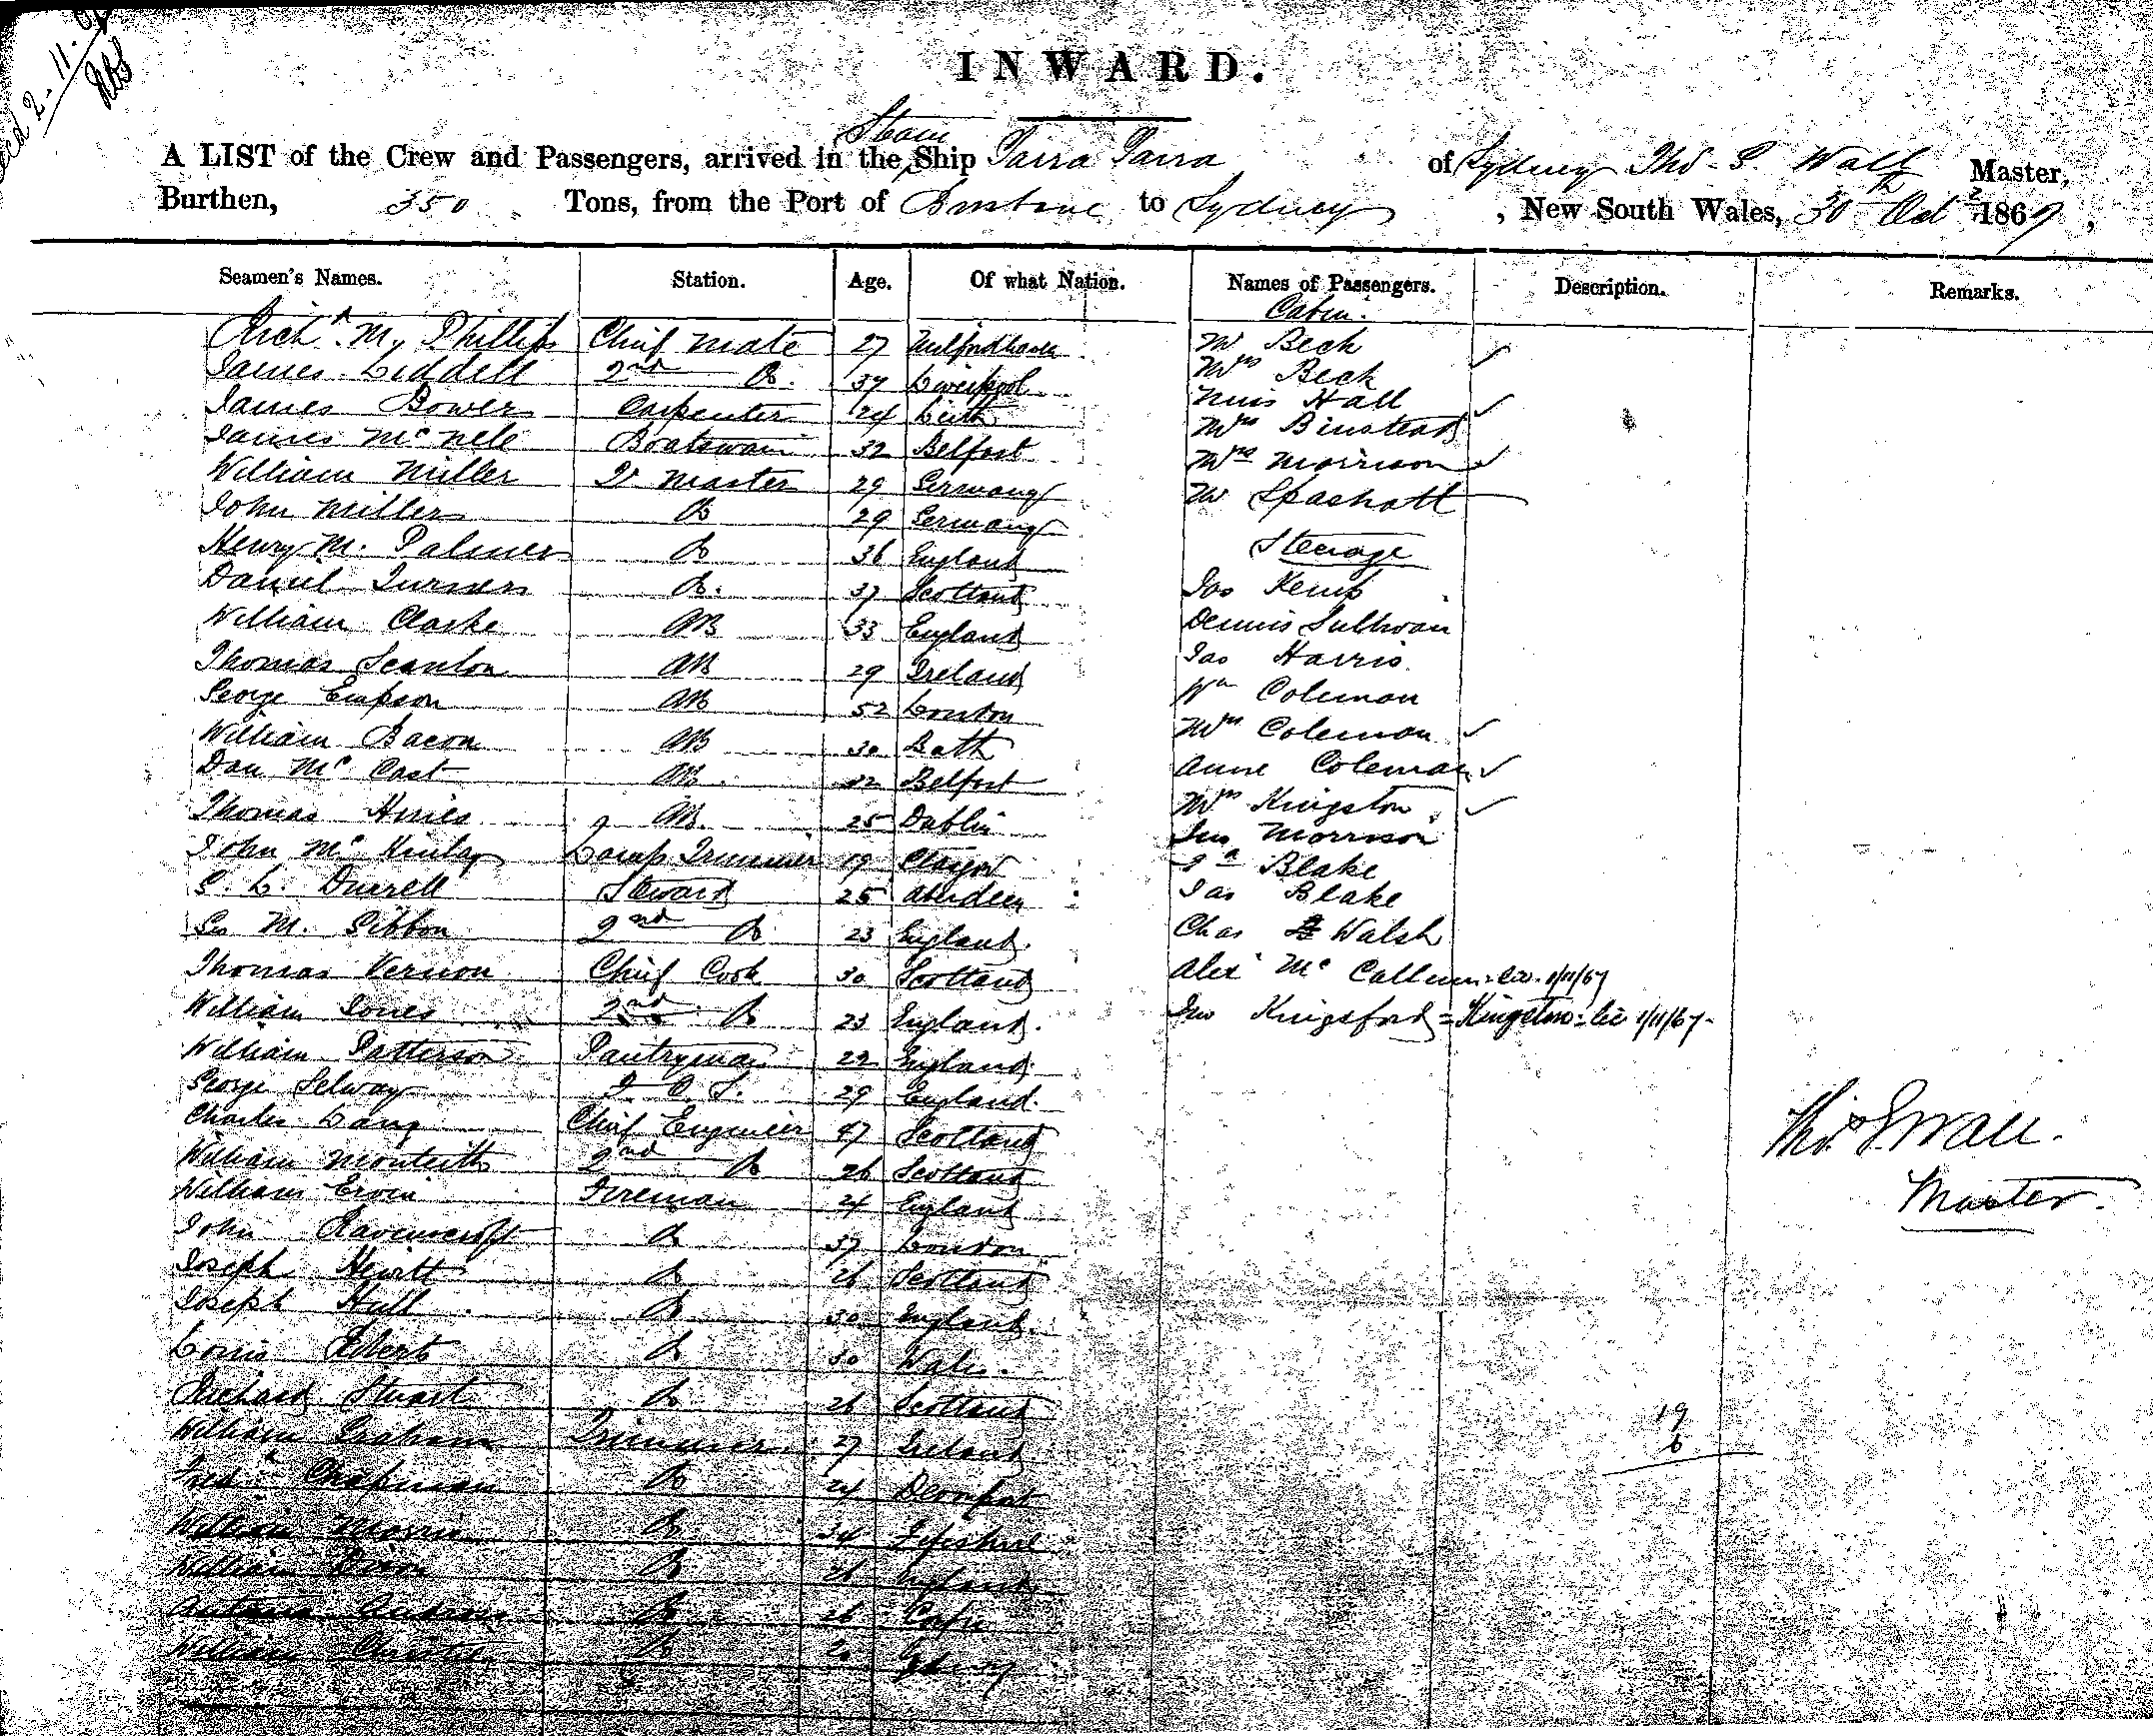 2-11-67
INWARD.
Steam
A LIST of the Crew and Passengers, arrived in the Ship Yarra Yarra of Sydney Thos S. Wall Master,
Burthen, 350 Tons, from the Port of Brisbane to Sydney, New South Wales, 30th Oct 1867,
Seamen's Names. Station. Age. Of what Nation. Names of Passengers. Description. Remarks.
Cabin.
Richd. M. Phillips Chief Mate 27 Milfordhaven Mr Beck
James Liddell 2nd Do. 37 Liverpool Mrs Beck ✓
James Bower Carpenter 24 Leith Miss Hall ✓
James McNele Boatswain 32 Belfast Mrs Binstead
William Miller Qr Master 29 Germany Mrs Morrison ✓
John Miller Do 29 Germany Mr Spashatt
Henry M. Palmer Do 36 England Steerage
Daniel Turner Do. 37 Scotland Jas Kemp
William Clarke AB 33 England Dennis Sullivan
Thomas Scanlon AB 29 Ireland Jas Harris.
George Empson AB 52 London Wm Coleman
William Bacon AB 30 Bath Mrs Coleman ✓
Dan McCast AB 32 Belfast Anne Coleman ✓
Thomas Hines AB. 25 Dublin Mrs Kingston ✓
John McKinlay Lamp Trimmer 19 Glasgow Jno Morrison
Blake
G. L. Durell Steward 25 Aberdeen Jas Blake
Geo M. Gibbon 2nd Do 23 England. Chas Walsh
Thomas Vernon Chief Cook 30 Scotland Alexr McCallum 1/11/67
William Jones 2nd Do 23 England. Jno Kingsford = Kingston 1/11/67
William Patterson Pantryman 22 England
George Selway F. C. S. 29 England.
Charles Lang Chief Engineer 47 Scotland
William Monteith 2nd Do 26 Scotland
William Ervin Fireman 24 England
John Ravenscroft Do 37 London
Joseph Hewitt Do 26 Scotland
Joseph Hull Do 30 England.
Louis Roberts Do 30 Wales.
Richard Stuart Do 26 Scotland
William Graham Trimmer 27 Ireland
Fredk Chapman Do 24 Devonport
William Morris Do 34 Fifeshire
William Dixon Do 26 England
Do 26
William Christie Do 20
Thos S Wall.
Master.
19
6